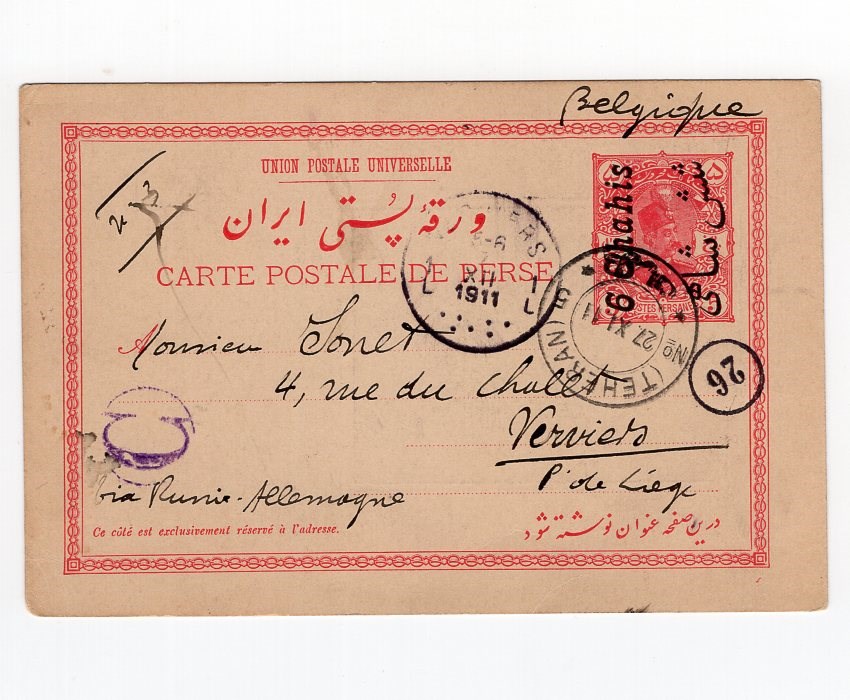 Belgique
UNION POSTALE UNIVERSELLE
ورقهٔ پُستی ایران
CARTE POSTALE DE PERSE
6 Shahis
شش شاهی
۵
5
VERVIERS
5-6
7
XII
1911
1L
1L
(TEHERAN)
27. XI. 11
No 5
26
Monsieur Sonet
4, rue du
Verviers
Pce de Liège
C
via Russie-Allemagne
Ce côté est exclusivement réservé à l'adresse.
درین صفحه عنوان نوشته شود